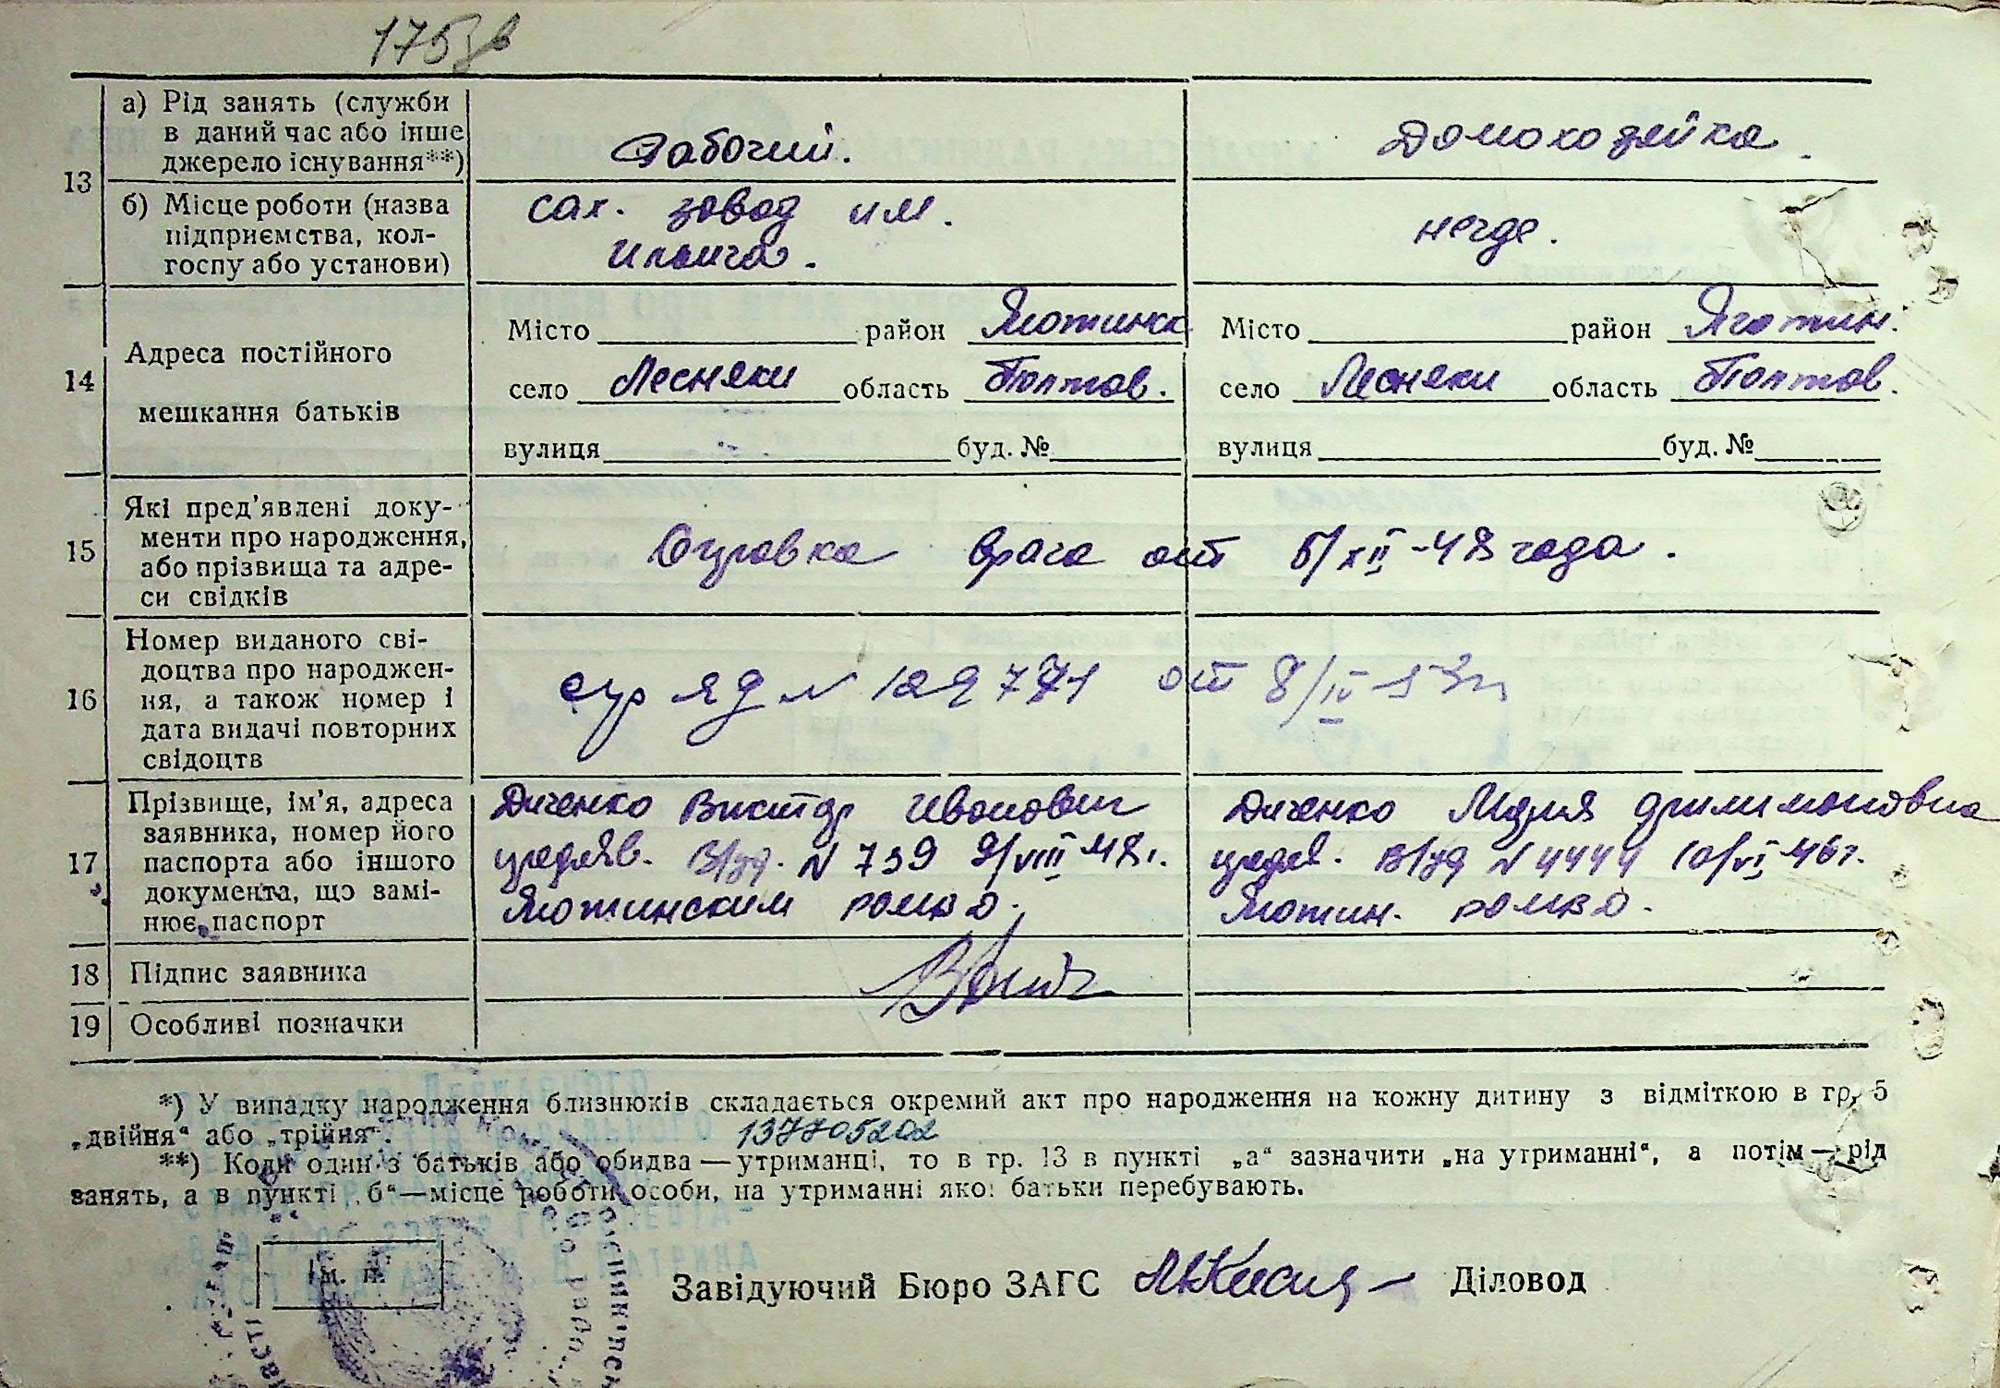 175зв
а) Рід занять (служби
в даний час або інше
джерело існування**)
Рабочий.
Домохозяйка.
13
б) Місце роботи (назва
підприємства, кол-
госпу або установи)
сах. завод им.
Ильича.
негде.
14
Адреса постійного
мешкання батьків
Місто район Яготинск
село Лесняки область Полтав.
вулиця буд. №
Місто район Яготин.
село Лесняки область Полтав.
вулиця буд. №
15
Які пред'явлені доку-
менти про народження,
або прізвища та адре-
си свідків
Справка врача от 6/XII-48 года.
16
Номер виданого сві-
доцтва про народжен-
ня, а також номер і
дата видачі повторних
свідоцтв
ЯД N от 8/IV-53г
17
Прізвище, ім'я, адреса
заявника, номер його
паспорта або іншого
документа, що замі-
нює паспорт
Диченко Виктор Иванович
предъяв. В/уд. N 739 9/VIII-48г.
Яготинским
Диченко Мария Филимоновна
предя. В/уд N 4444 10/VI-46г.
Яготин.
18
Підпис заявника
19
Особливі позначки
*) У випадку народження близнюків складається окремий акт про народження на кожну дитину з відміткою в гр. 5
„двійня“ або „трійня“.
137705202
**) Коли один з батьків або обидва — утриманці, то в гр. 13 в пункті „а“ зазначити „на утриманні“, а потім — рід
занять, а в пункті „б“ — місце роботи особи, на утриманні якої батьки перебувають.
м. п.
Завідуючий Бюро ЗАГС Діловод